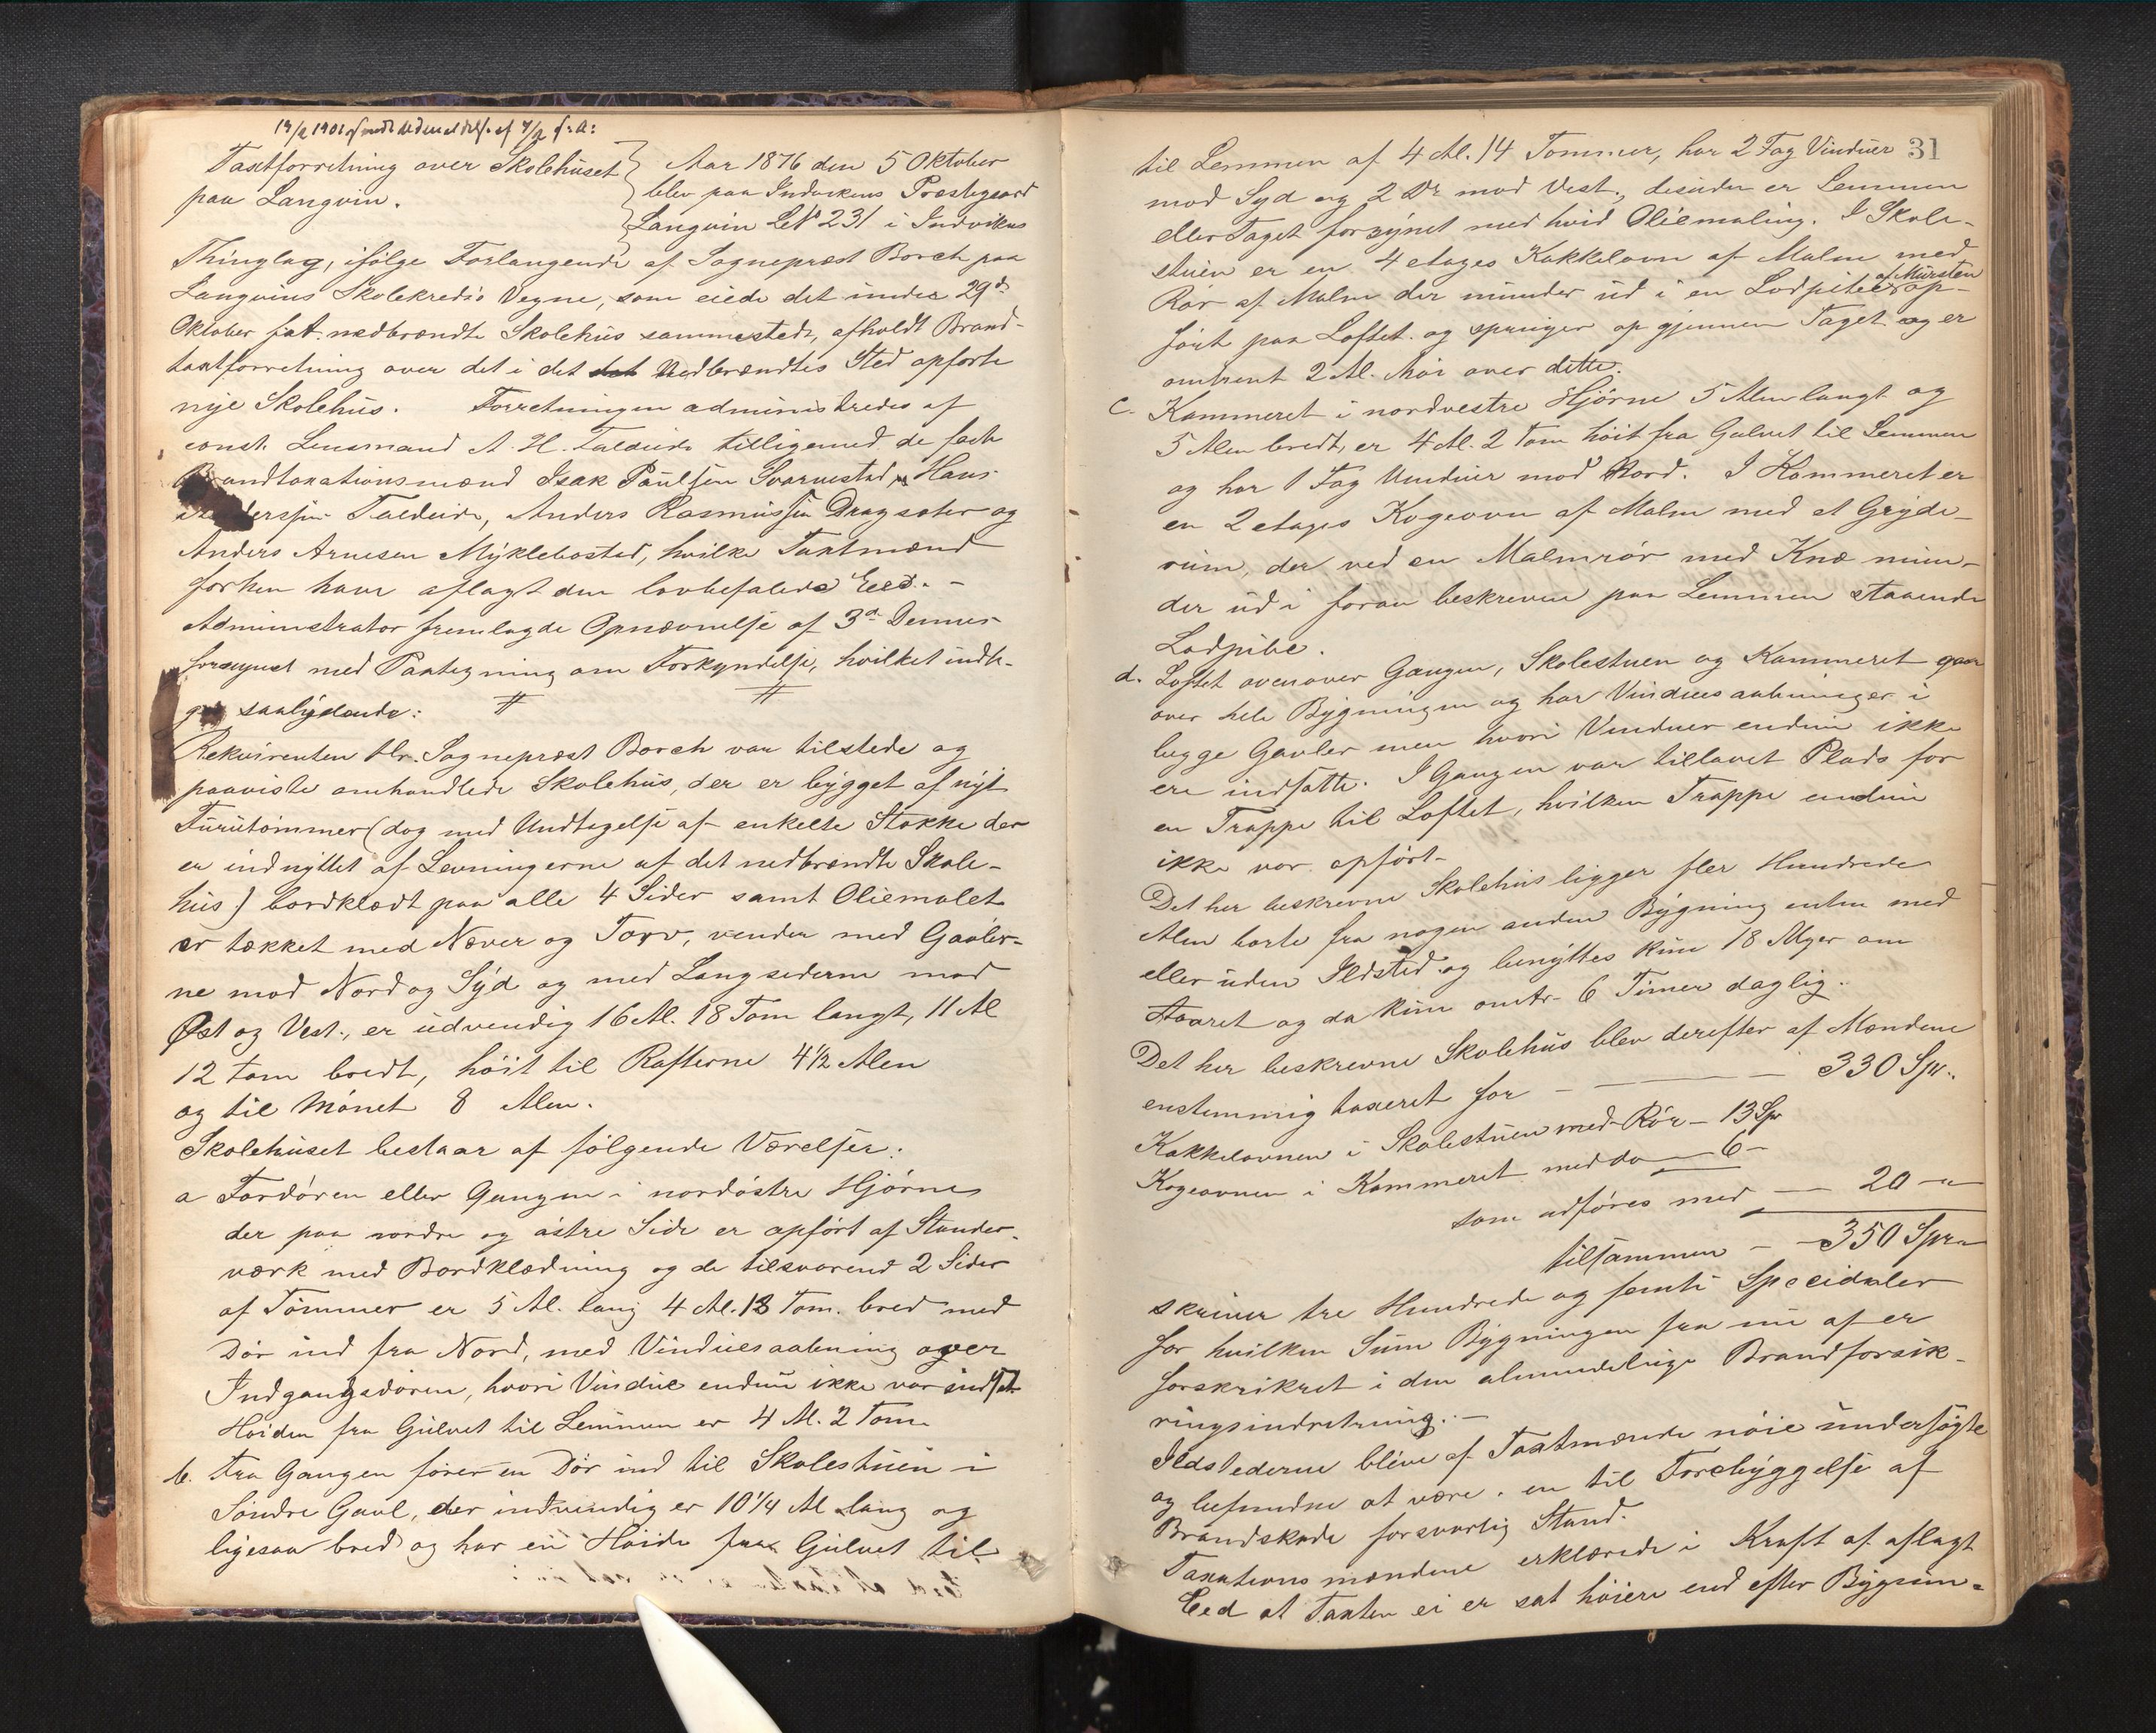 Taxtforretning over Skolehuset
paa Langvin.
Aar 1876 den 5 Oktober
blev paa Indvikens Præstegaard
Langvin LN 231 i Indvikens
Thinglag, ifølge Forlangende af Sognepræst Borch paa
Langvins Skolekreds's Vegne, som eiede det under 29de
Oktober f.A. nedbrændte Skolehus sammesteds, afholdt Brand-
taxtforretning over det i det Nedbrændtes Sted opførte
nye Skolehus. Forretningen administreredes af
const. Lensmand A. H. Taldeide tilligemed de faste
Brandtaxationsmænd Isak Paulsen Svarvestad, Hans
Taldeide, Anders Rasmussen Dragsæter og
Anders Arnesen Myklebostad, hvilke Taxtmænd
forhen have aflagt den lovbefalede Eed. -
Administrator fremlagde Opnævnelse af 3de Dennes
forsynet med Paategning om Forkyndelse, hvilket indta-
ges saalydende: # #
Rekvirenten Hr. Sognepræst Borch var tilstede og
paaviste omhandlede Skolehus, der er bygget af nyt
Furutømmer (dog med Undtagelse af enkelte Stokke der
er indnyttet af Levningerne af det nedbrændte Skole-
hus) bordklædt paa alle 4 Sider samt Oliemalet
er tækket med Næver og Torv, vender med Gavler-
ne mod Nord og Syd og med Langsiderne mod
Øst og Vest., er udvendig 16 Al. 18 Tom langt, 11 Al
12 Tom bredt, høit til Rafterne 4 1/2 Alen
og til Mønet 8 Alen.
Skolehuset bestaar af følgende Værelser:
a Fordøren eller Gangen i nordøstre Hjørne
der paa nordre og østre Side er opført af Stander-
værk med Bordklædning og de tilsvarend 2 Sider
af Tømmer er 5 Al. lang 4 Al. 18 Tom. bred med
Dør ind fra Nord, med Vinduesaabning over
Indgangsdøren, hvori Vindue endnu ikke var indsat
Høiden fra Gulvet til Lemmen er 4 Al. 2 Tom
b. Fra Gangen fører en Dør ind til Skolestuen i
Søndre Gavl, der indvendig er 10 1/4 Al lang og
ligesaa bred og har en Høide fra Gulvet til
31
til Lemmen af 4 Al. 14 Tommer, har 2 Fag Vinduer
mod Syd og 2 Do mod Vest., desuden er Lemmen
eller Taget forsynet med hvid Oliemaling. I Skole-
stuen er en 4 etages Kakkelovn af Malm med
Rør af Malm der munder ud i en Lodpibe af Mursten op-
ført paa Loftet og springer op gjennem Taget og er
omtrent 2 Al. høi over dette.
c. Kammeret i nordvestre Hjørne 5 Alen langt og
5 Alen bredt, er 4 Al. 2 Tom høit fra Gulvet til Lemmen
og har 1 Fag Vinduer mod Nord. I Kammeret er
en 2 etages Kogeovn af Malm med et Gryde-
rum, der ved en Malmrør med Knæ mun-
der ud i foran beskrevne paa Lemmen staaende
Lodpibe.
d. Loftet ovenover Gangen, Skolestuen og Kammeret gaar
over hele Bygningen og har Vinduesaabninger i
begge Gavler men hvori Vinduer endnu ikke
ere indsatte. I Gangen var tillavet Plads for
en Trappe til Loftet, hvilken Trappe endnu
ikke var opført.
Det her beskrevne Skolehus ligger fler Hundrede
Alen borte fra nogen anden Bygning enten med
eller uden Ildsted og benyttes kun 18 Uger om
Aaret og da kun omtr. 6 Timer daglig.
Det her beskrevne Skolehus blev derefter af Mændene
enstemmig taxeret for - 330 Spd.
Kakkelovnen i Skolestuen med Rør - 13 Spd
Kogeovnen i Kammeret med do - 6 -
som udføres med - 20 - "
tilsammen - 350 Spd "
skriver tre Hundrede og femti Speciedaler
for hvilken Sum Bygningen fra nu af er
forskrikret i den almindelige Brandforsik-
ringsindretning. -
Ildstederne bleve af Taxtmændene nøie undersøgte
og befundne at være i en til Forebyggelse af
Brandskade forsvarlig Stand.
Taxationsmændene erklærede i Kraft af aflagt
Eed at Taxten ei er sat høiere end efter Bygnin-